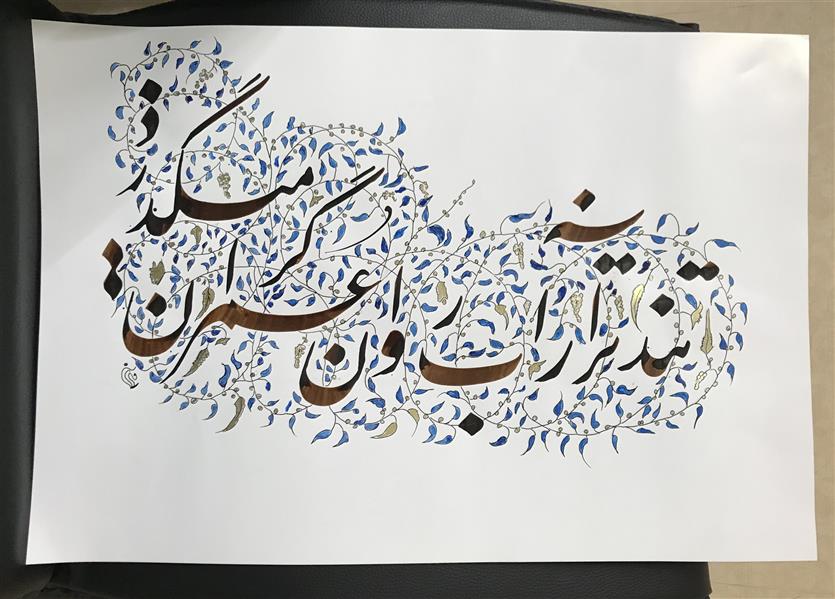 تندتر از آب روان عمر گران میگذرد